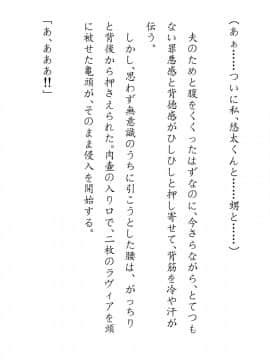 （あぁ……ついに私、悠太くんと……甥と……）
夫のためと腹をくくったはずなのに、今さらながら、とてつも
ない罪悪感と背徳感がひしひしと押し寄せて、背筋を冷や汗が
伝う。
しかし、思わず無意識のうちに引こうとした腰は、がっちり
と背後から押さえられた。肉壷の入り口で、二枚のラヴィアを頭
に被せた亀頭が、そのまま侵入を開始する。
「あ、あああ!!」